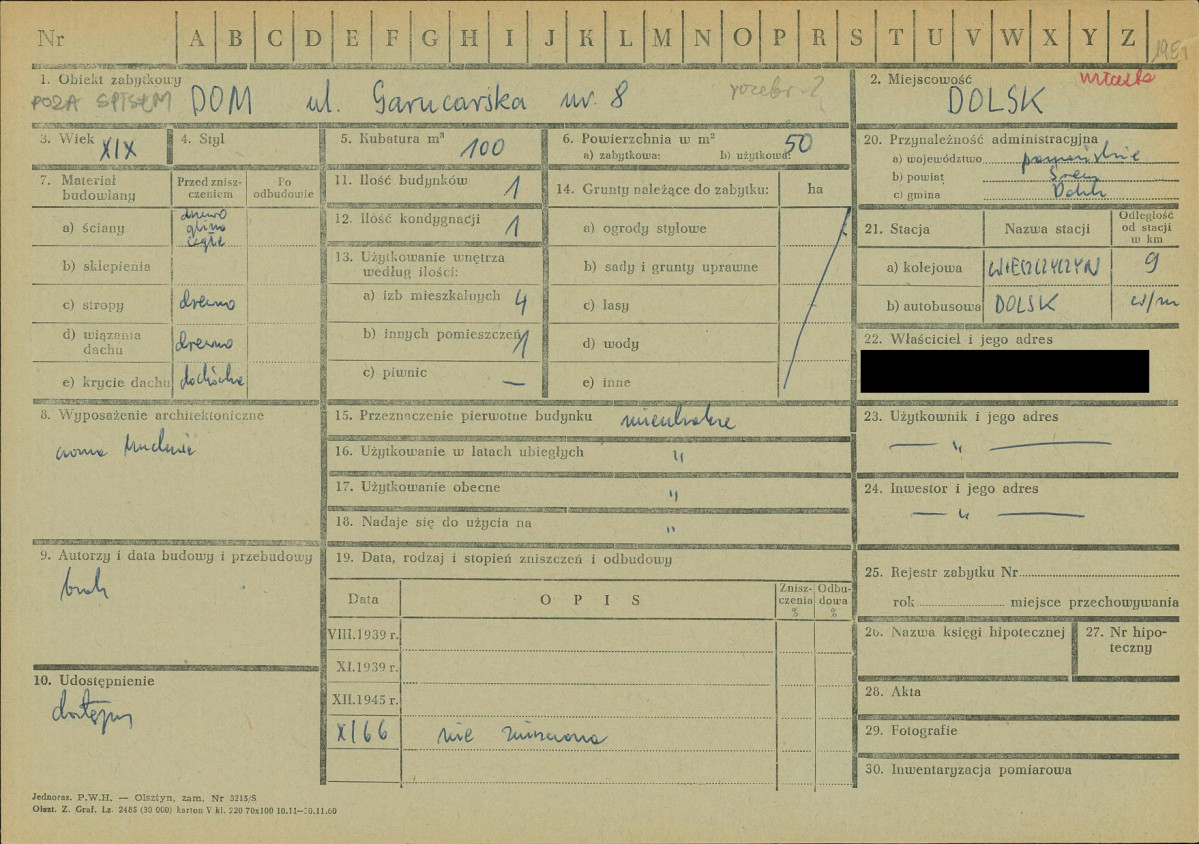 Nr A B C D E F G H I J K L M N O P R S T U V W X Y Z
1. Obiekt zabytkowy
POZA SPISEM DOM ul. Garncarska nr. 8
2. Miejscowość
miasto
DOLSK
3. Wiek XIX
4. Styl
5. Kubatura m³ 100
6. Powierzchnia w m²
a) zabytkowa: b) użytkowa: 50
7. Materiał budowlany
Przed zniszczeniem
Po odbudowie
a) ściany drewno glina cegła
b) sklepienia
c) stropy drewno
d) wiązania dachu drewno
e) krycie dachu dachówka
11. Ilość budynków 1
12. Ilość kondygnacji 1
13. Użytkowanie wnętrza
według ilości:
a) izb mieszkalnych 4
b) innych pomieszczeń 1
c) piwnic —
14. Grunty należące do zabytku: ha
a) ogrody stylowe
b) sady i grunty uprawne
c) lasy
d) wody
e) inne
20. Przynależność administracyjna
a) województwo poznańskie
b) powiat Śrem
c) gmina Dolsk
21. Stacja Nazwa stacji Odległość od stacji w km
a) kolejowa WIESZCZYCZYN 9
b) autobusowa DOLSK w/m
22. Właściciel i jego adres
8. Wyposażenie architektoniczne
czarna kuchnia
15. Przeznaczenie pierwotne budynku mieszkalne
16. Użytkowanie w latach ubiegłych "
17. Użytkowanie obecne "
18. Nadaje się do użycia na "
23. Użytkownik i jego adres
— " —
24. Inwestor i jego adres
— " —
9. Autorzy i data budowy i przebudowy
brak
10. Udostępnienie
dostępny
19. Data, rodzaj i stopień zniszczeń i odbudowy
Data OPIS Zniszczenia % Odbudowa %
VIII.1939 r.
XI.1939 r.
XII.1945 r.
XI 66 nie zniszczona
25. Rejestr zabytku Nr
rok miejsce przechowywania
26. Nazwa księgi hipotecznej
27. Nr hipoteczny
28. Akta
29. Fotografie
30. Inwentaryzacja pomiarowa
Jednoraz. P.W.H. — Olsztyn, zam. Nr 3215/S
Olszt. Z. Graf. Lz. 2485 (30 000) karton V kl. 220 70x100 10.11—30.11.60